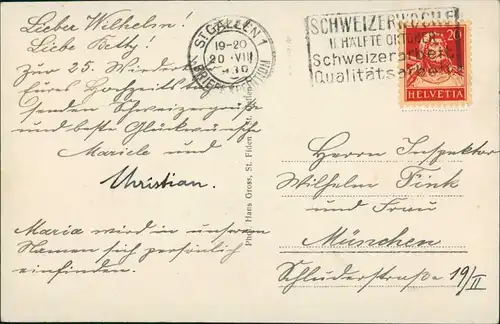 Lieber Wilhelm!
Liebe Betty!
Zur 25. Wiederkehr
Eures Hochzeitstages
senden Schweizergrüsse
und beste Glückwünsche
Mariele und
Christian.
Maria wird in unserem
Namen sich persönlich
einfinden.
ST. GALLEN 1
19-20
20·VIII
Phot. Hans Gross, St. Fiden - St. Gallen
SCHWEIZERWOCHE
II. HÄLFTE OKTOBER
Schweizerarbeit
Qualitätsarbeit
20
HELVETIA
Herrn Inspektor
Wilhelm Fink
und Frau
München
Schluderstraße 19/II